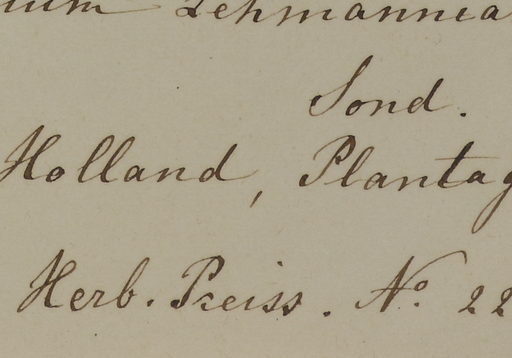 ium Lehmannia
Sond.
Holland, Plantag
Herb. Preiss. No. 22